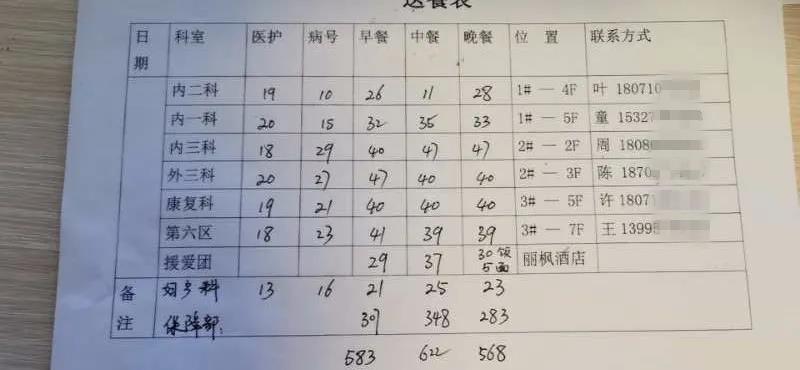 送餐表
日期 科室 医护 病号 早餐 中餐 晚餐 位 置 联系方式
内二科 19 10 26 11 28 1# — 4F 叶 180710
内一科 20 15 32 35 33 1# — 5F 童 15327
内三科 18 29 40 47 47 2# — 2F 周 1808
外三科 20 27 47 40 40 2# — 3F 陈 1870
康复科 19 21 40 40 40 3# — 5F 许 1807
第六区 18 23 41 39 39 3# — 7F 王 13995
援爱团 29 37 30饭 5面 丽枫酒店
备注 妇产科 13 16 21 25 23
保障部: 307 348 283
583 622 568